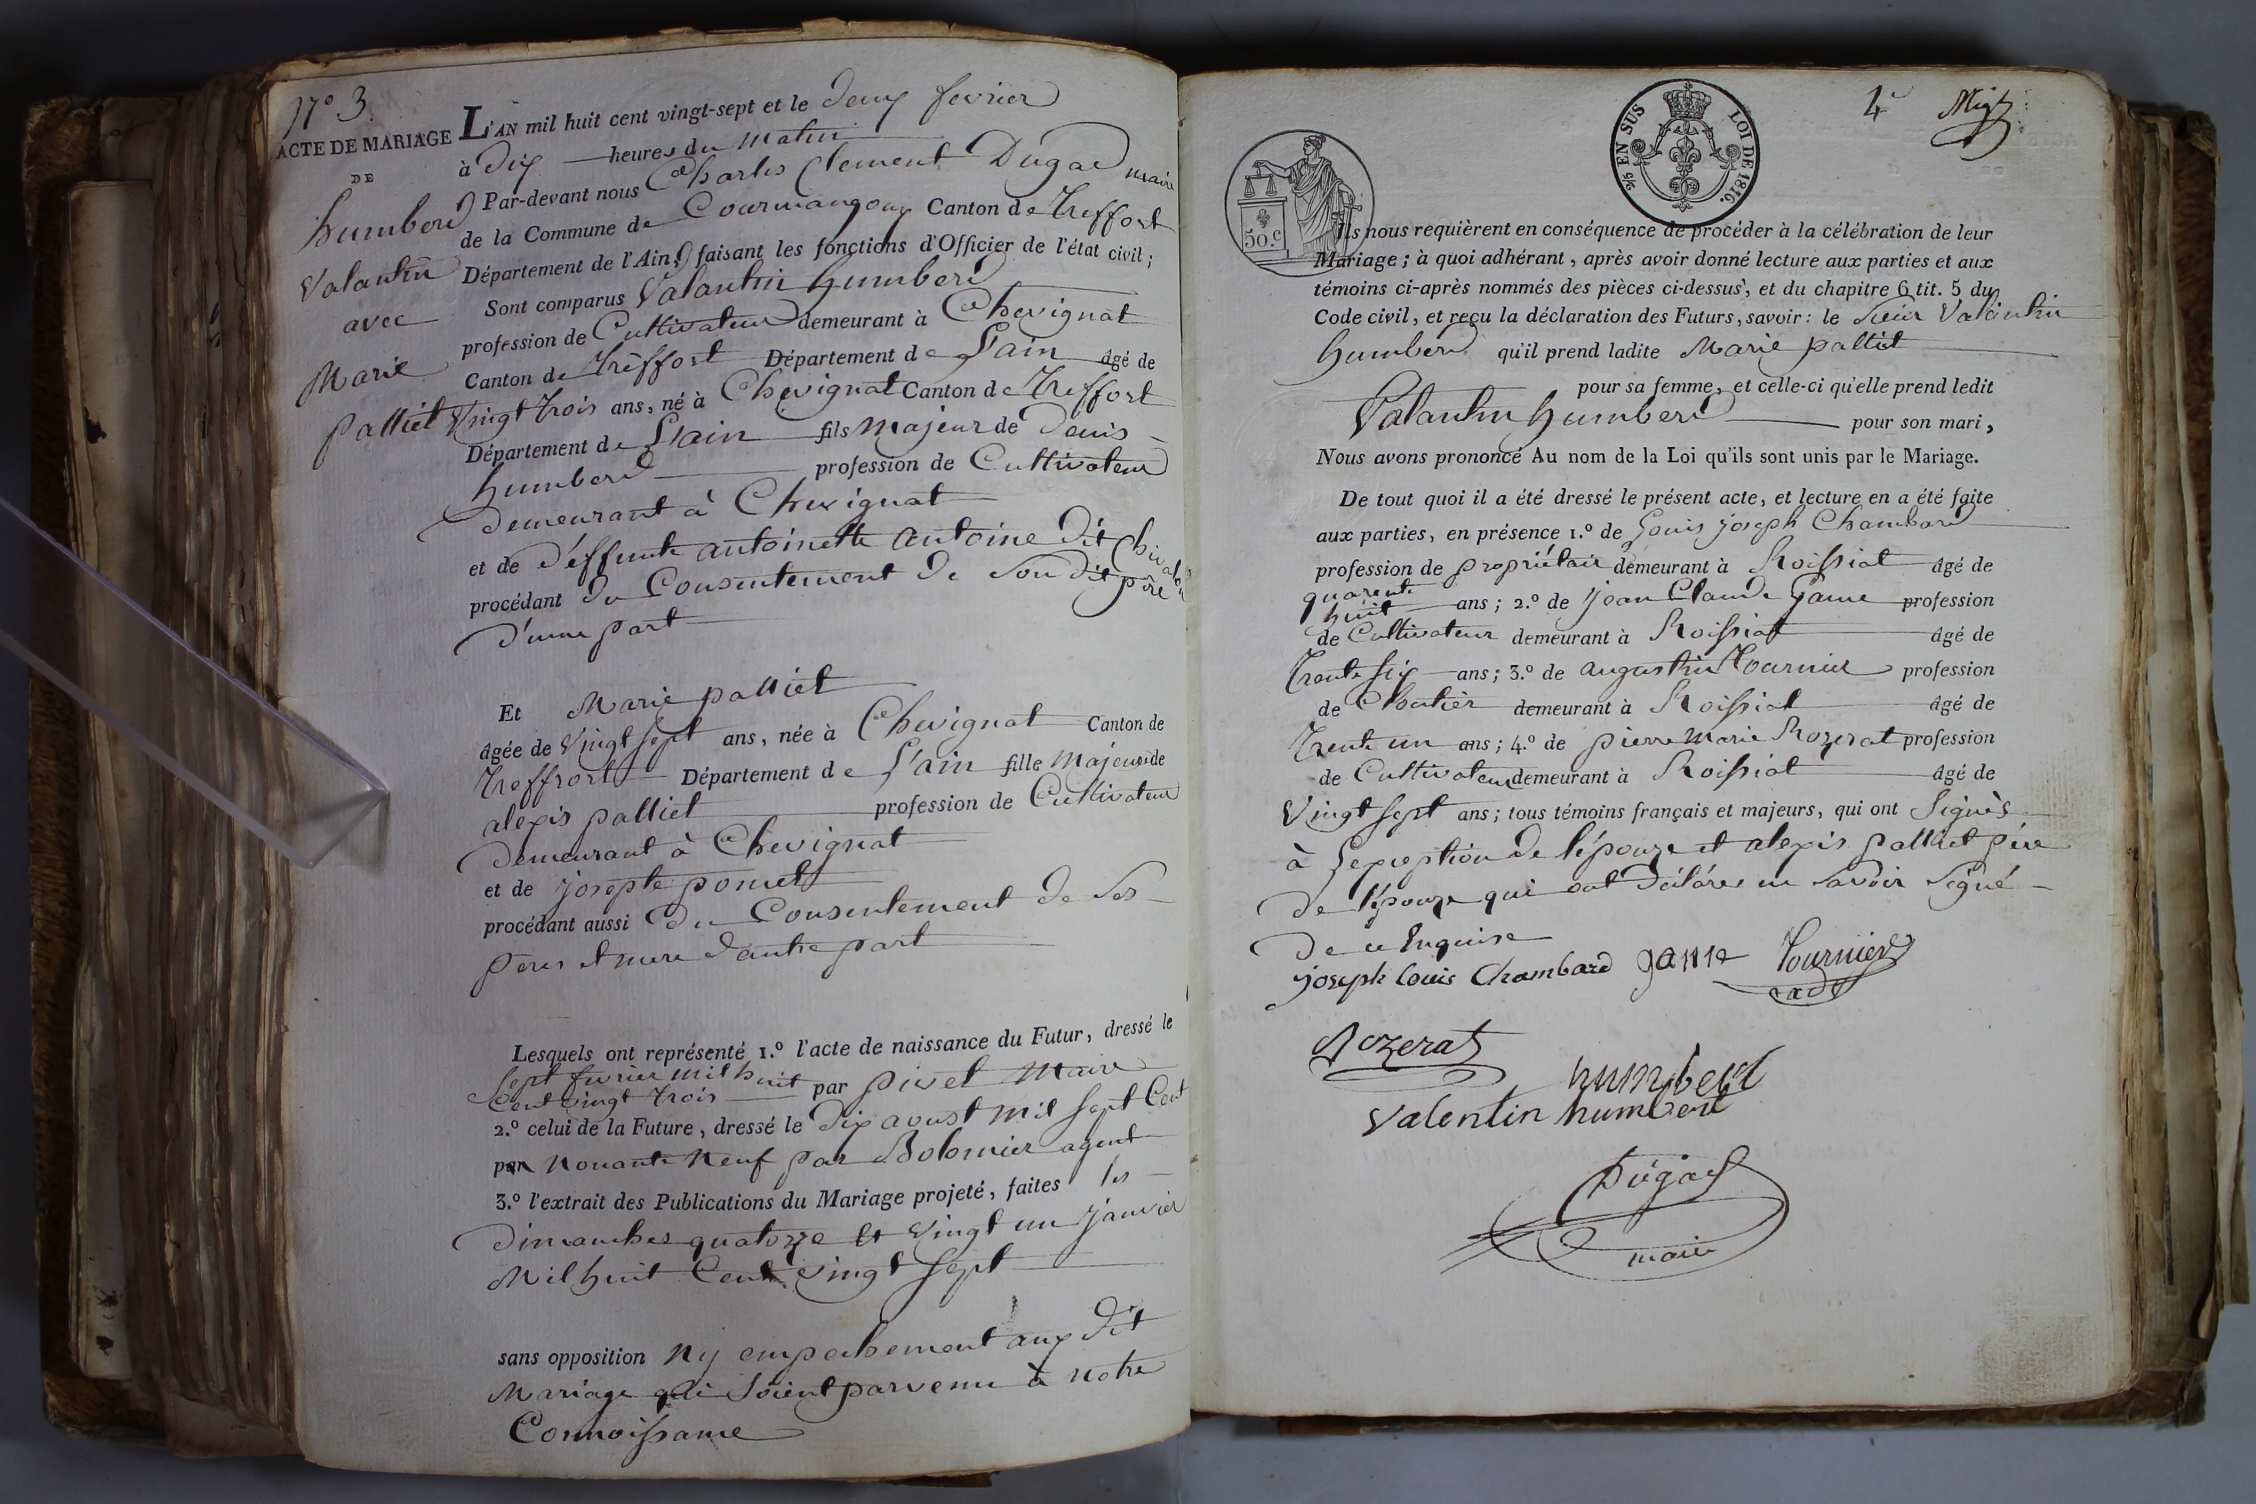 N° 3.
ACTE DE MARIAGE
DE
humberd
Valantin
avec
Marie
palliet
L'AN mil huit cent vingt-sept et le deux fevrier
à dix heures du matin
Par-devant nous Charles Clement Dugad maire
de la Commune de Courmangoux Canton de Treffort
Département de l'Ain, faisant les fonctions d'Officier de l'état civil;
Sont comparus Valantin humberd
profession de Cultivateur demeurant à Chevignat
Canton de Treffort Département de L'ain âgé de
Vingt trois ans, né à Chevignat Canton de Treffort
Département de L'ain fils majeur de denis
humberd profession de Cultivateur
demeurant à Chevignat
et de déffunte antoinette antoine dit
procédant du Consentement de son dit père
d'une part
Et Marie palliet
âgée de vingt sept ans, née à Chevignat Canton de
Treffrort Département de L'ain fille majeure de
alexis palliet profession de Cultivateur
demeurant à Chevignat
et de josephte poncet
procédant aussi du Consentement de ses
peres et mere d'autre part
Lesquels ont représenté 1.° l'acte de naissance du Futur, dressé le
Sept fevrier mil huit
Cent vingt trois par pivet Maire
2.° celui de la Future, dressé le dix avust mil sept Cent
par Nonante Neuf par Bolomier agent
3.° l'extrait des Publications du Mariage projeté, faites les
dimanches quatorze et vingt un janvier
Mil huit Cent vingt sept
sans opposition ny empechement aux dit
Mariage qui soient parvenu à notre
Connoissance
4e
5/0 EN SUS LOI DE 1816.
50.c
Ils nous requièrent en conséquence de procéder à la célébration de leur
Mariage; à quoi adhérant, après avoir donné lecture aux parties et aux
témoins ci-après nommés des pièces ci-dessus, et du chapitre 6 tit. 5 du
Code civil, et reçu la déclaration des Futurs, savoir: le sieur Valantin
humberd qu'il prend ladite Marie palliet
pour sa femme, et celle-ci qu'elle prend ledit
Valantin humberd pour son mari,
Nous avons prononcé Au nom de la Loi qu'ils sont unis par le Mariage.
De tout quoi il a été dressé le présent acte, et lecture en a été faite
aux parties, en présence 1.° de Louis joseph Chambard
profession de propriétaire demeurant à Roissiat âgé de
quarente
huit ans; 2.° de jean Claude Game profession
de Cultivateur demeurant à Roissiat âgé de
Trente six ans; 3.° de augustin Tournier profession
de demeurant à Roissiat âgé de
Trente un ans; 4.° de pierre Marie Rozerat profession
de Cultivateur demeurant à Roissiat âgé de
Vingt sept ans; tous témoins français et majeurs, qui ont signés
à Lexception de l'épouze et alexis palliet père
de l'épouze qui ont déclarés ne savoir signé
de ce Enquise
joseph louis Chambard game Tournier
Rozerat
humberd
Valentin humberd
Dugad
maire